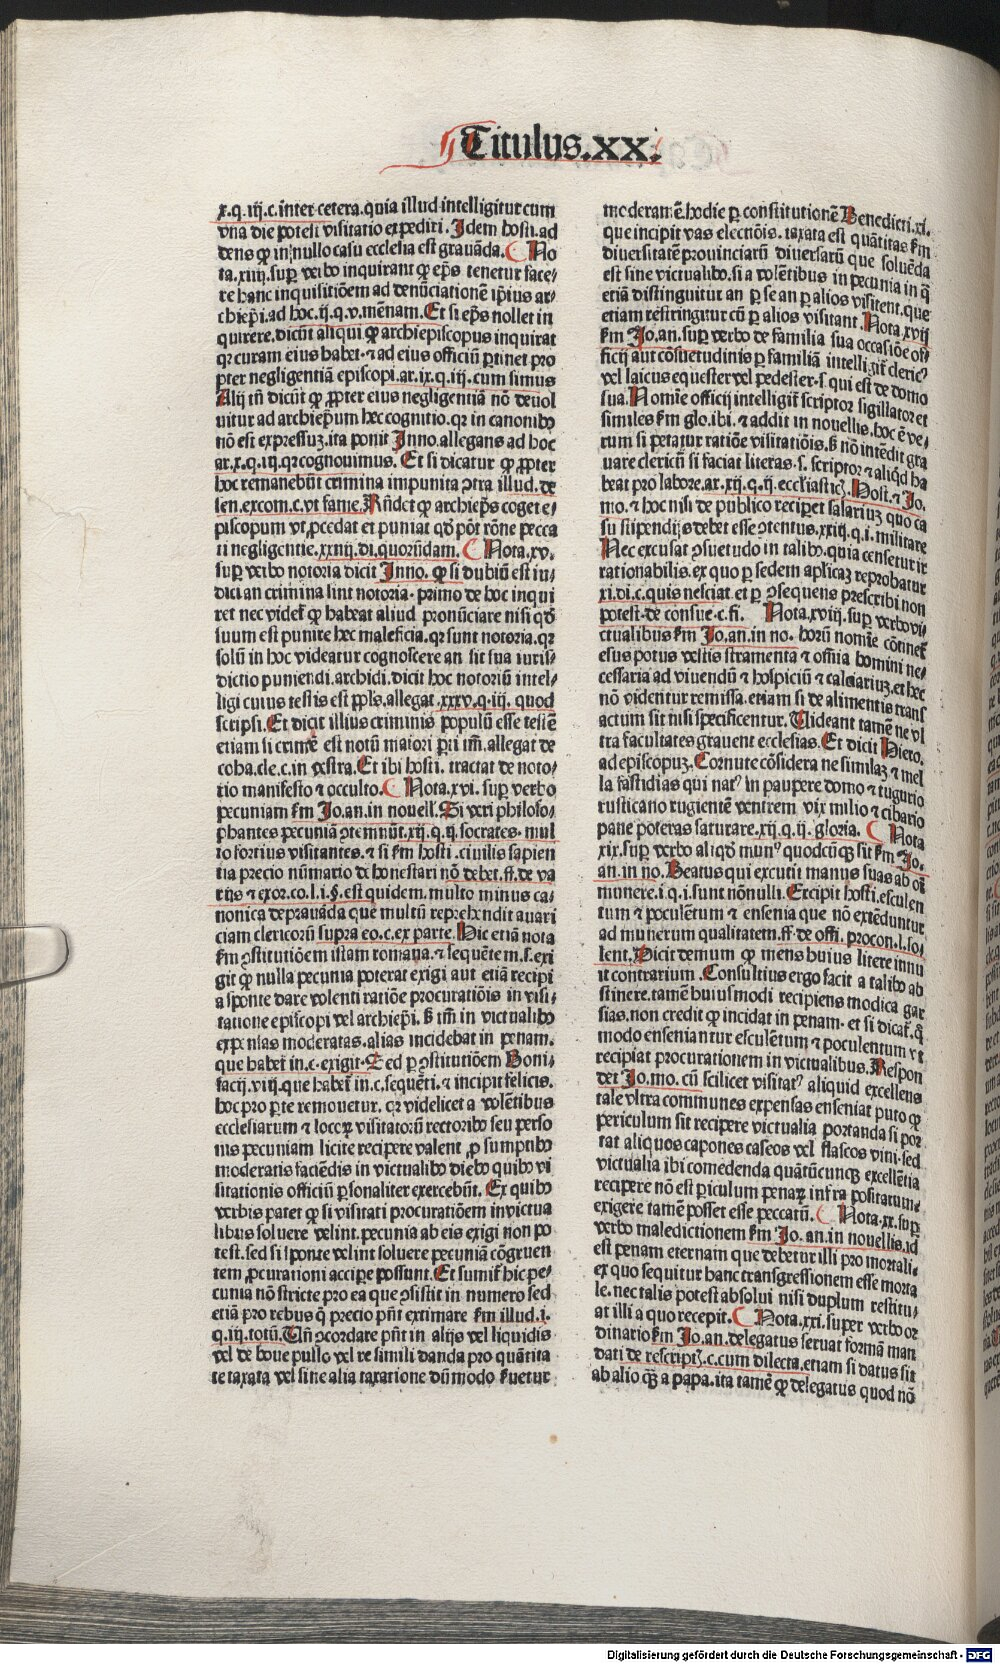 Titulus.xx.
x.q.iij.c.inter cetera.quia illud intelligitur cum
vna die potest visitatio expediri. Idem hosti.ad
dens ꝙ in nullo casu ecclesia est grauāda. No
ta.xiiij.suꝑ verbo inquirant ꝙ ep̄s tenetur face⸗
re hanc inquisitiōem ad denūciationē ip̄ius ar⸗
chiep̄i.ad hoc.ij.q.v.mēnam. Et si ep̄s nollet in
quirere.dicūt aliqui ꝙ archiepiscopus inquirat
qꝛ curam eius habet.⁊ ad eius officiū ꝑtinet pro
pter negligentiā episcopi.ar.ix.q.iij.cum simus
Alij tn̄ dicūt ꝙ ꝓpter eius negligentiā nō deuol
uitur ad archiep̄um hec cognitio.qꝛ in canonibꝰ
nō est expressuꝫ.ita ponit Inno.allegans ad hoc
ar.x.q.iij.qꝛ cognouimus. Et si dicatur ꝙ ꝓpter
hoc remanebūt crimina impunita ꝯtra illud.de
sen.excom.c.vt fame.Rn̄det ꝙ archiep̄s coget e⸗
piscopum vt ꝓcedat et puniat qd̄ pōt rōne pecca
ti negligentie.xxiij.di.quorūdam. Nota.xv.
suꝑ verbo notoria dicit Inno. ꝙ si dubiū est iu⸗
dici an crimina sint notoria. primo de hoc inqui
ret nec videt̄ ꝙ habeat aliud pronūciare nisi qd̄
suum est punire hec maleficia.qꝛ sunt notoria.qꝛ
solū in hoc videatur cognoscere an sit sua iuris⸗
dictio puniendi.archidi.dicit hoc notoriū intel⸗
ligi cuius testis est ppls̄.allegat.xxxv.q.iij. quod
scripsi. Et dicit illius criminis populū esse testē
etiam si crimē est notū maiori ꝑti im̄.allegat de
coha.cle.c.in vestra. Et ibi hosti. tractat de noto⸗
rio manifesto ⁊ occulto. Nota.xvi. suꝑ verbo
pecuniam fm̄ Io.an.in nouell. Si veri philoso⸗
phantes pecuniā ꝯtemnūt.xij.q.ij.socrates. mul
to fortius visitantes.⁊ si fm̄ hosti.ciuilis sapien
tia precio nūmario dehonestari nō debet.ff.de va
rijs ⁊ exor.co.l.i.§.est quidem.multo minus ca⸗
nonica deprauāda que multū reprehendit auari
ciam clericorū supra eo.c.ex parte. Hic etiā nota
fm̄ ꝯstitutiōem istam romana.⁊ sequētem.s.exi
git ꝙ nulla pecunia poterat exigi aut etiā recipi
a sponte dare volenti ratiōe procuratiōis in visi⸗
tatione episcopi vel archiep̄i. s̄ im̄ in victualibꝰ
exp̄nsas moderatas.alias incidebat in penam.
que habet̄ in.c.exigit. Sed ꝑ ꝯstitutiōem Boni⸗
facij.viij.que habet̄ in.c.sequēti.⁊ incipit felicis.
hoc pro ꝑte remouetur. qꝛ videlicet a volētibus
ecclesiarum ⁊ locoꝝ visitatorū rectoribꝰ seu perso
nis pecuniam licite recipere valent ꝓ sumptibꝰ
moderatis faciēdis in victualibꝰ diebꝰ quibꝰ vi
sitationis officiū ꝑsonaliter exercebūt. Ex quibꝰ
verbis patet ꝙ si visitati procuratiōem in victua
libus soluere velint.pecunia ab eis exigi non po
test.sed si sponte velint soluere pecuniā cōgruen
tem ꝓcurationi accipe possunt. Et sumit̄ hic pe⸗
cunia nō stricte pro ea que ꝯsistit in numero sed
etiā pro rebus q̄ precio pn̄t extimare fm̄ illud.i.
q.iij.totū. Tn̄ ꝯcordare pn̄t in alijs vel liquidis
vel de boue pullo vel re simili danda pro quātita
te taxata vel sine alia taxatione dūmodo seruetur
moderamē.hodie ꝑ constitutionē Benedicti.xi.
que incipit vas electiōis. taxata est quātitas fm̄
diuersitatē prouinciarū diuersarū que soluēda
est sine victualibꝰ.si a volētibus in pecunia in q̄
etiā distinguitur an ꝑ se an ꝑ alios visitent.que
etiam restringitur cū ꝑ alios visitant. Nota.xvij
fm̄ Io.an.suꝑ verbo de familia sua occasiōe of⸗
ficij aut cōsuetudinis ꝑ familiā intelligit̄ clericꝰ
vel laicus equester vel pedester.s.qui est de domo
sua. Nomie officij intelligit̄ scriptor sigillator et
similes fm̄ glo.ibi.⁊ addit in nouellis.hoc ē ve⸗
rum si petatur ratiōe visitatiōis.s̄ nō intēdit gra
uare clericū si faciat literas.s.scriptor ⁊ aliqd̄ ha
beat pro labore.ar.xij.q.ij.ecclīasticꝫ. Host.⁊ Io.
mo.⁊ hoc nisi de publico recip̄et salariuꝫ quo ca
su stipendijs debet esse ꝯtentus.xxiij.q.i.militare
Nec excusat ꝯsuetudo in talibꝰ.quia censetur ir
rationabilis.ex quo ꝑ sedem ap̄licaꝫ reprobatur
xi.di.c.quis nesciat.et ꝑ ꝯsequens prescribi non
potest.de consue.c.fi. Nota.xviij.suꝑ verbo vi⸗
ctualibus fm̄ Io.an.in no. horū nomīe cōtinet̄
esus potus vestis stramenta ⁊ oīnia homini ne⸗
cessaria ad viuendū ⁊ hospiciū ⁊ calciariuꝫ.et hec
nō videntur remissa.etiam si de alimentis trans
actum sit nisi specificentur. Uideant tamē ne vl
tra facultates grauent ecclesias. Et dicit Hiero.
ad episcopuꝫ. Cornute cōsidera ne similaꝫ ⁊ mel
la fastidias qui natꝰ in paupere domo ⁊ tugurio
rusticano rugientē ventrem vix milio ⁊ cibario
pane poteras saturare.xij.q.ij. gloria. Nota
xix.suꝑ verbo aliqd̄ munꝰ quodcūqꝫ sit fm̄ Io.
an.in no. Beatus qui excutit manus suas ab oī
munere.i.q.i.sunt nōnulli. Excipit hosti.esculen
tum ⁊ poculētum ⁊ ensenia que nō extēduntur
ad munerum qualitatem.ff.de offi. procon.l.so⸗
lent. Dicit demum ꝙ mens huius litere innu
it contrarium. Consultius ergo facit a talibꝰ ab
stinere.tamē huiusmodi recipiens modica gar
sias.non credit ꝙ incidat in penam. et si dicat̄. q̄
modo enseniantur esculētum ⁊ poculentum vt
recipiat procurationem in victualibus. Respon
det Io.mo.cū scilicet visitatꝰ aliquid excellens
tale vltra communes expensas enseniat puto ꝙ
periculum sit recipere victualia portanda si por
tat aliquos capones caseos vel flascos vini.sed
victualia ibi comedenda quātūcunqꝫ excellētia
recipere nō est ꝑiculum penaꝝ infra positarum⸗
exigere tamē posset esse peccatū. Nota.xx.suꝑ
verbo maledictionem fm̄ Io. an.in nouellis.id
est penam eternam que debetur illi pro mortali⸗
ex quo sequitur hanc transgressionem esse morta
le. nec talis potest absolui nisi duplum restitu⸗
at illi a quo recepit. Nota.xxi.super verbo or
dinario fm̄ Io.an.delegatus seruat formā man
dati de rescriptꝭ.c.cum dilecta.etiam si datus sit
ab alio qꝫ a papa.ita tamē ꝙ delegatus quod nō
Digitalisierung gefördert durch die Deutsche Forschungsgemeinschaft - DFG